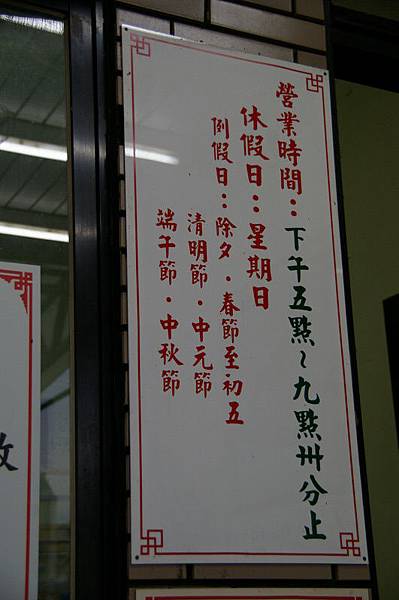 營業時間：下午五點~九點卅分止
休假日：星期日
例假日：除夕．春節至初五
清明節．中元節
端午節．中秋節